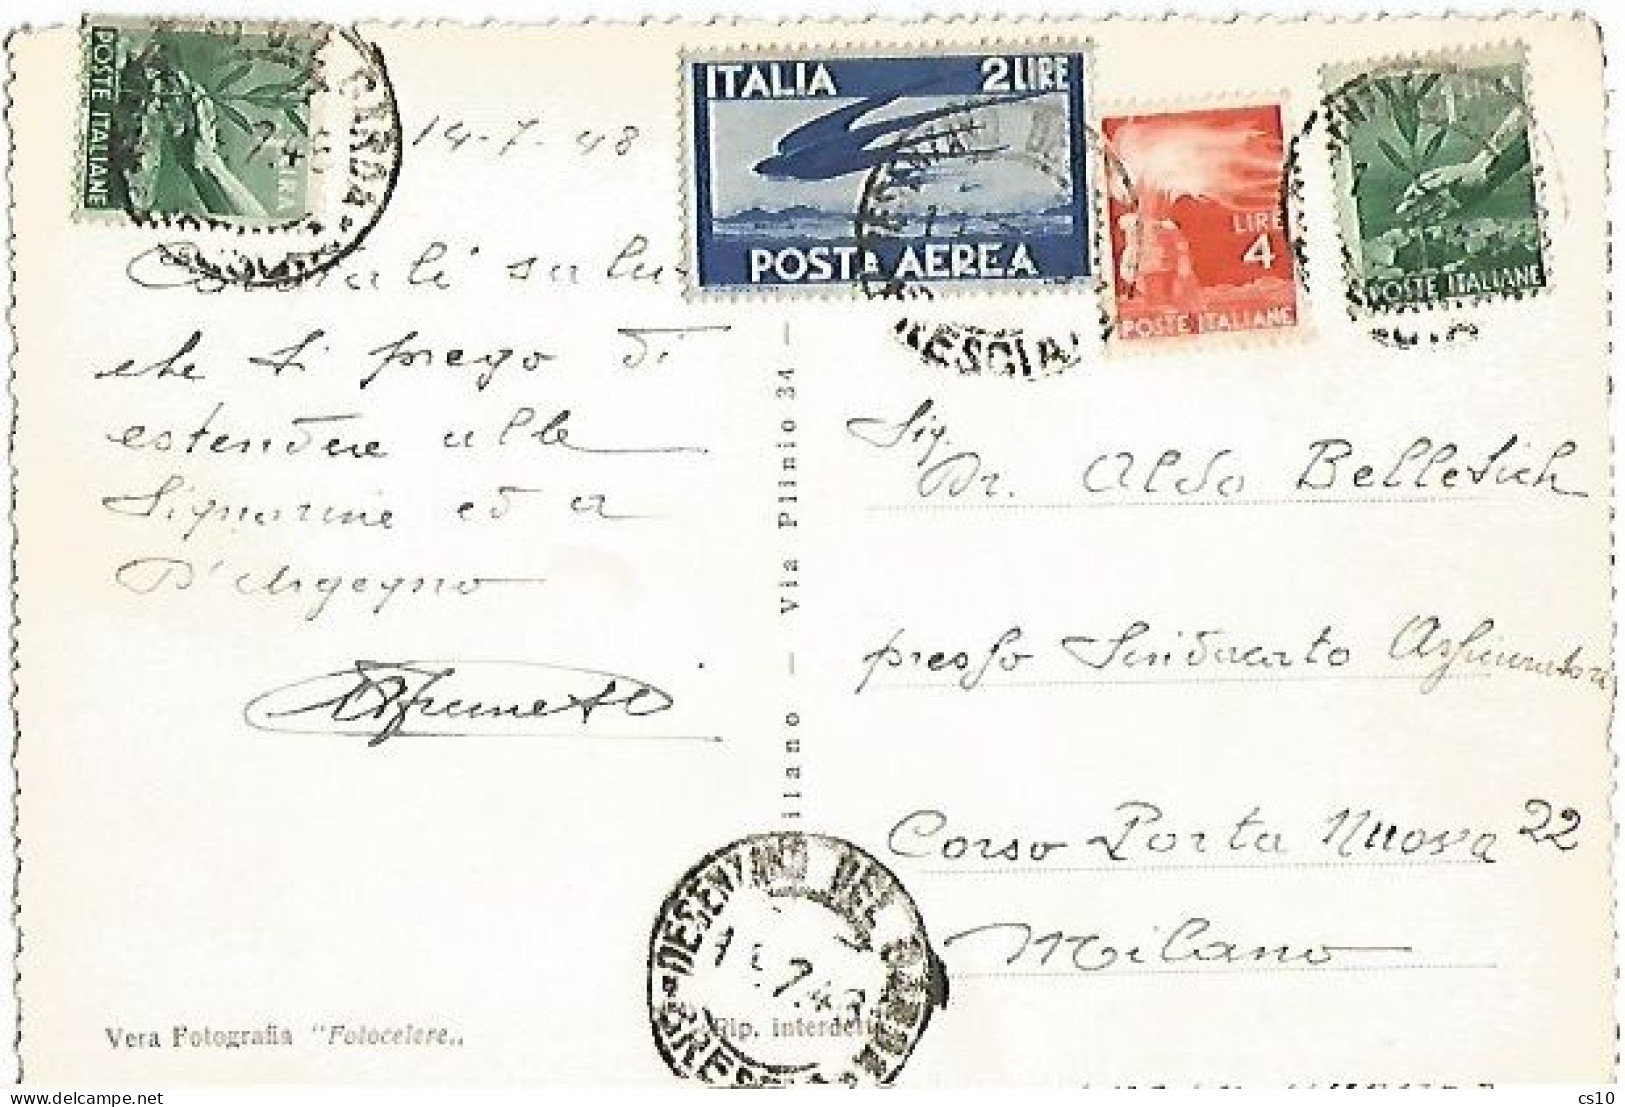 POSTE ITALIANE
LIRA
14-7-48
ITALIA 2 LIRE
POSTA AEREA
LIRE
4
POSTE ITALIANE
POSTE ITALIANE
Cordiali
che si prego di
estendere alle
Signorine ed a
D'Argegno
Sig.
Dr. Aldo Belletich
presso Sindacato Assicuratori
Corso Porta Nuova 22
Milano
Milano — Via Plinio 34 —
DESENZANO DEL GARDA
7.48
BRESCIA
Vera Fotografia "Fotocelere„
Rip. interdetta
cs10